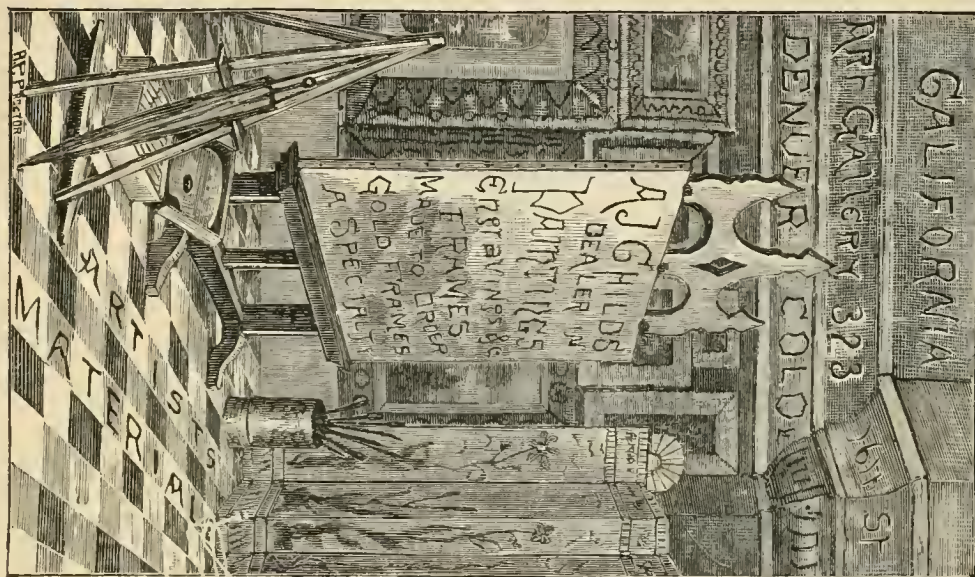 CALIFORNIA
ART GALLERY 323 16TH ST
DENVER COLO
A J CHILDS
DEALER IN
PAINTINGS
ENGRAVINGS &C
FRAMES
MADE TO ORDER
GOLD FRAMES
A SPECIALTY
ARTISTS
MATERIAL